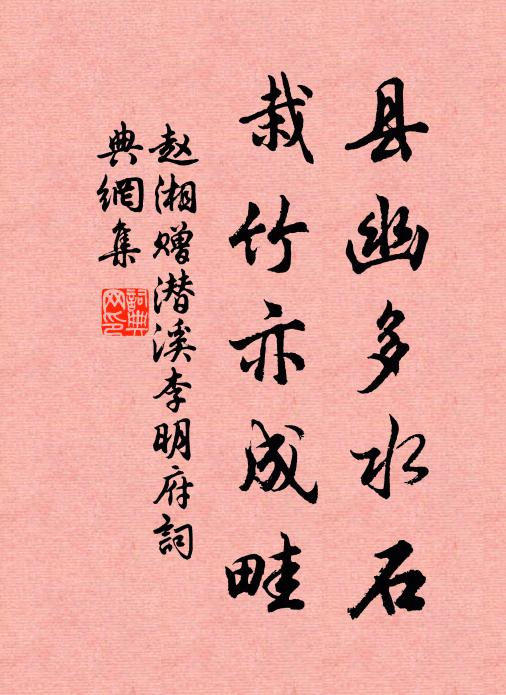 县幽多水石
栽竹亦成畦
赵湘赠潜溪李明府詞
典網集
詞典网印